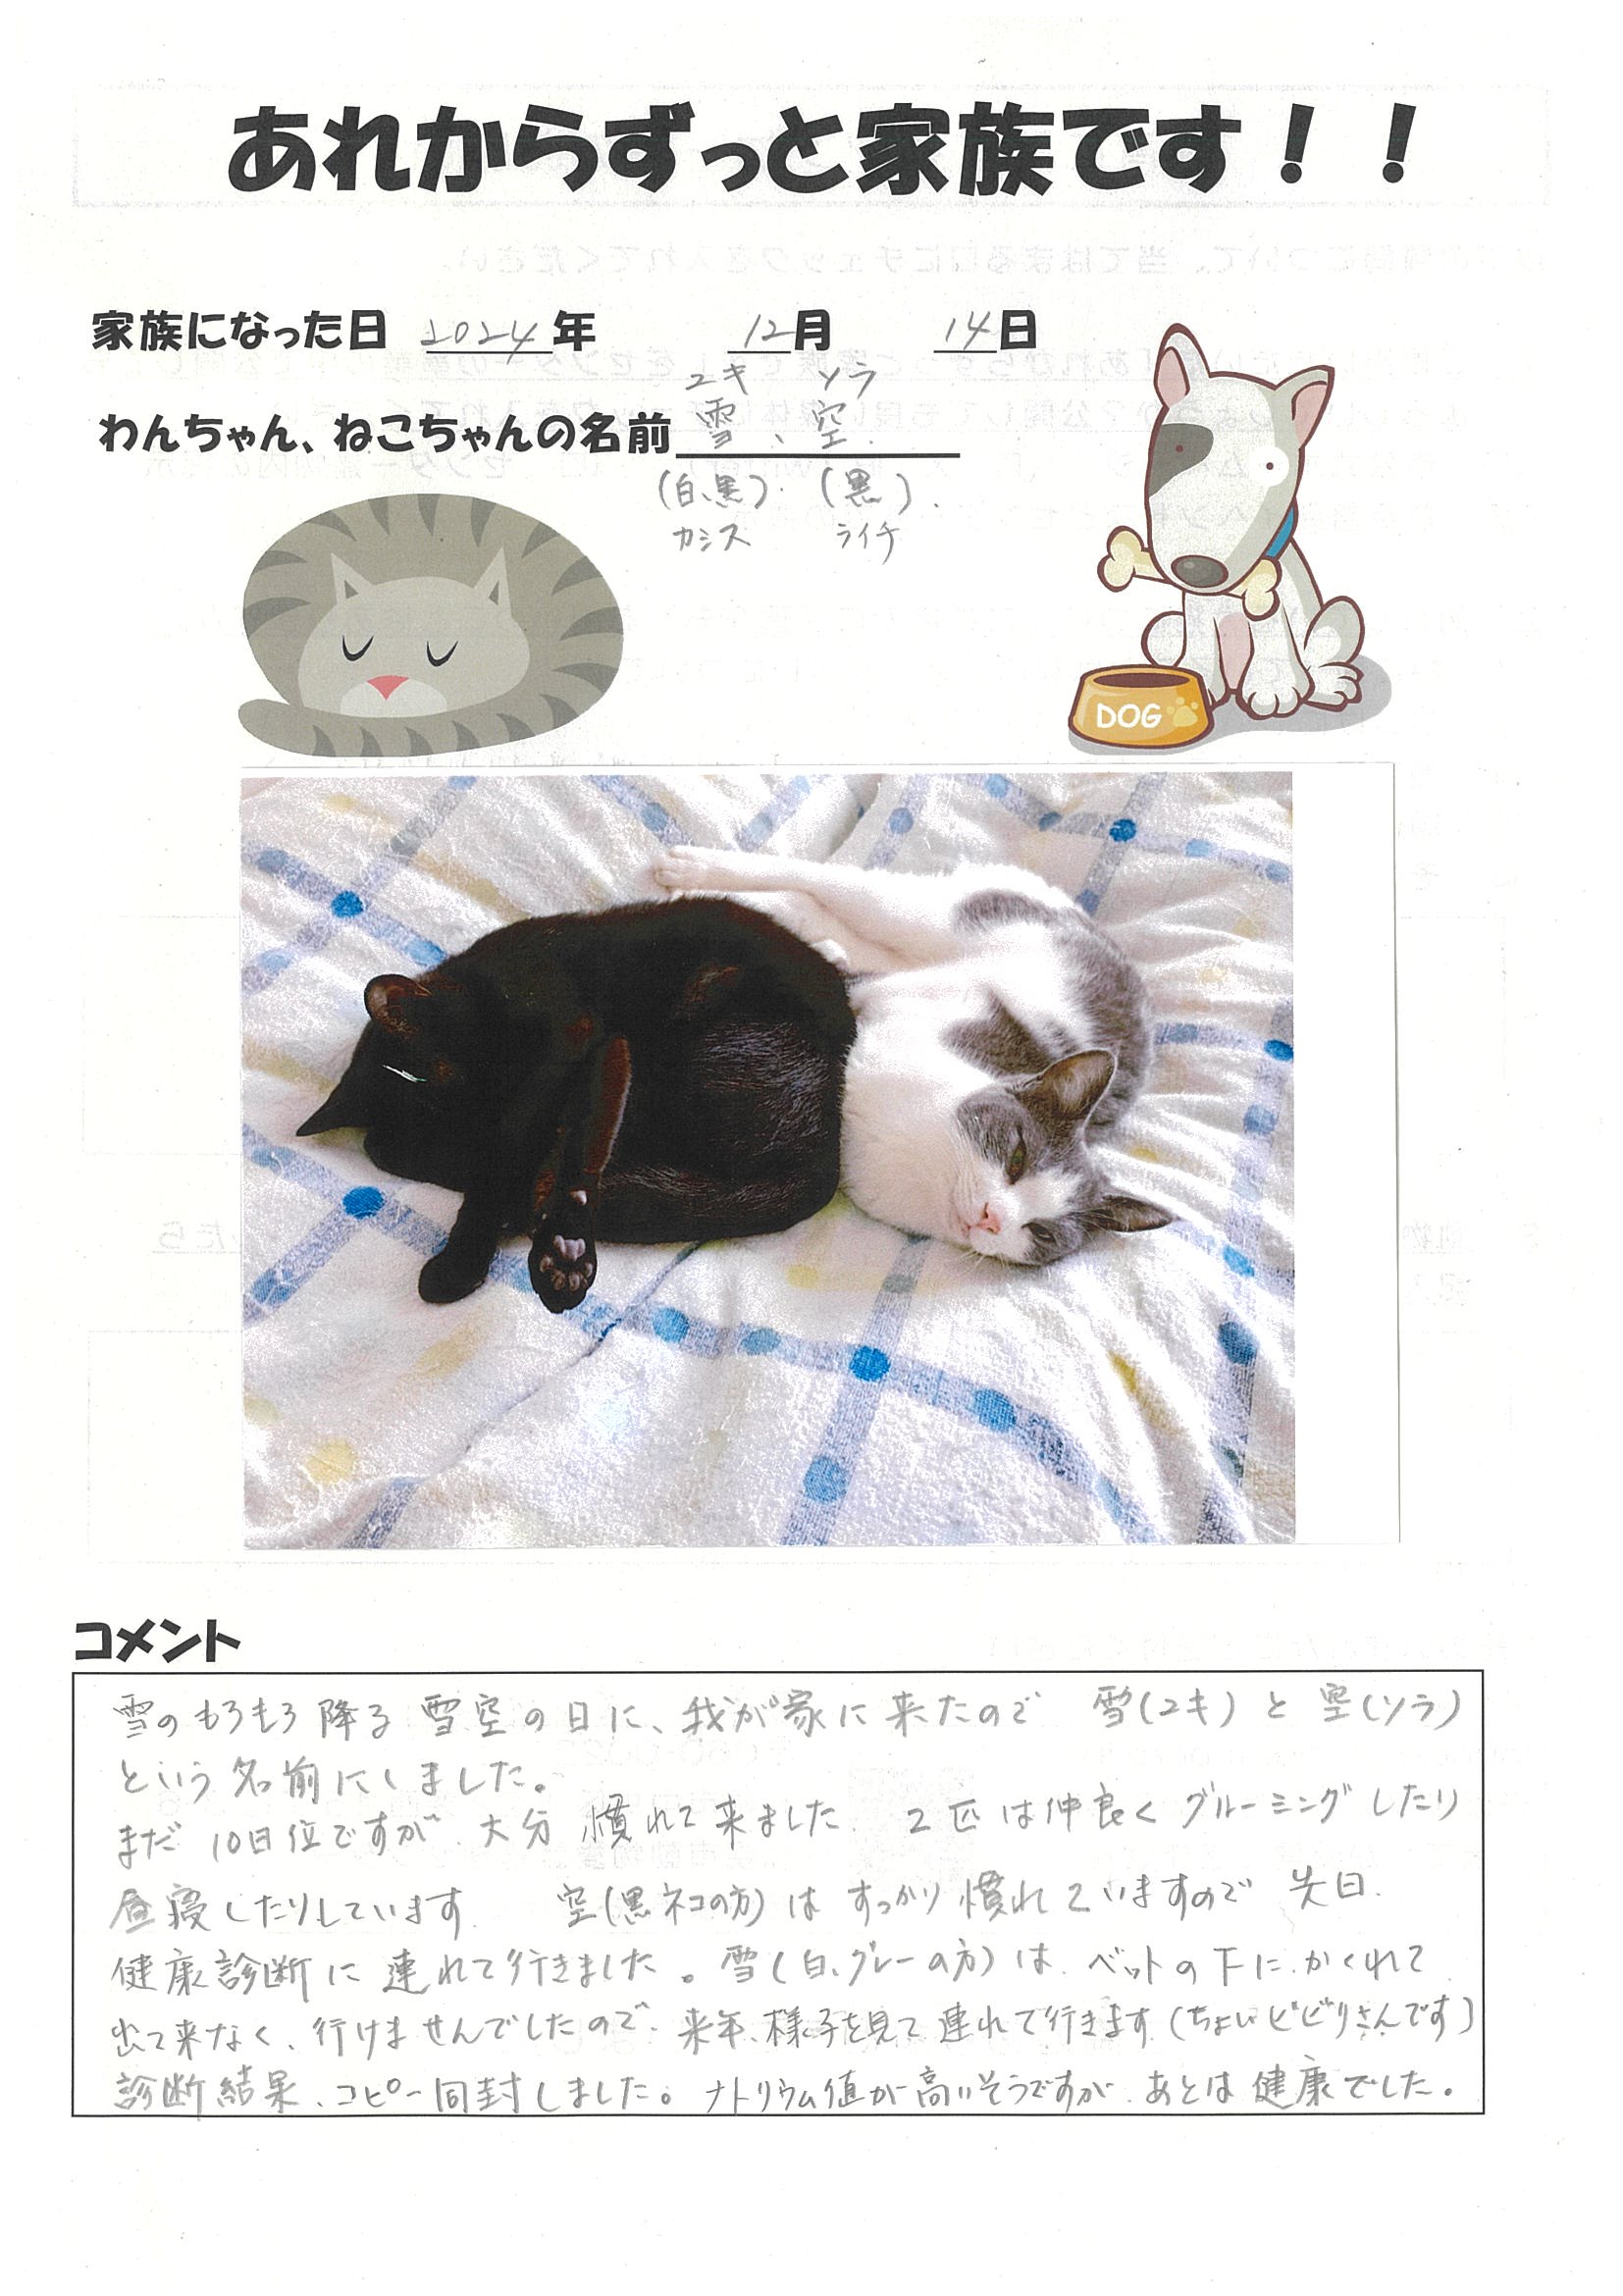 あれからずっと家族です！！
家族になった日 2024年 12月 14日
ユキ ソラ
わんちゃん、ねこちゃんの名前 雪、空.
(白、黒) (黒).
カシス ライチ
DOG
コメント
雪のもろもろ降る 雪空の日に、我が家に来たので 雪(ユキ)と空(ソラ)
という名前にしました。
まだ 10日位ですが、大分 慣れて来ました. 2匹は仲良くグルーミングしたり
昼寝したりしています. 空(黒ネコの方)は すっかり慣れていますので 先日.
健康診断に連れて行きました。雪(白、グレーの方)は、ベットの下に、かくれて
出て来なく、行けませんでしたので、来年、様子を見て連れて行きます(ちょいビビリさんです)
診断結果、コピー同封しました。ナトリウム値が高いそうですが、あとは健康でした。